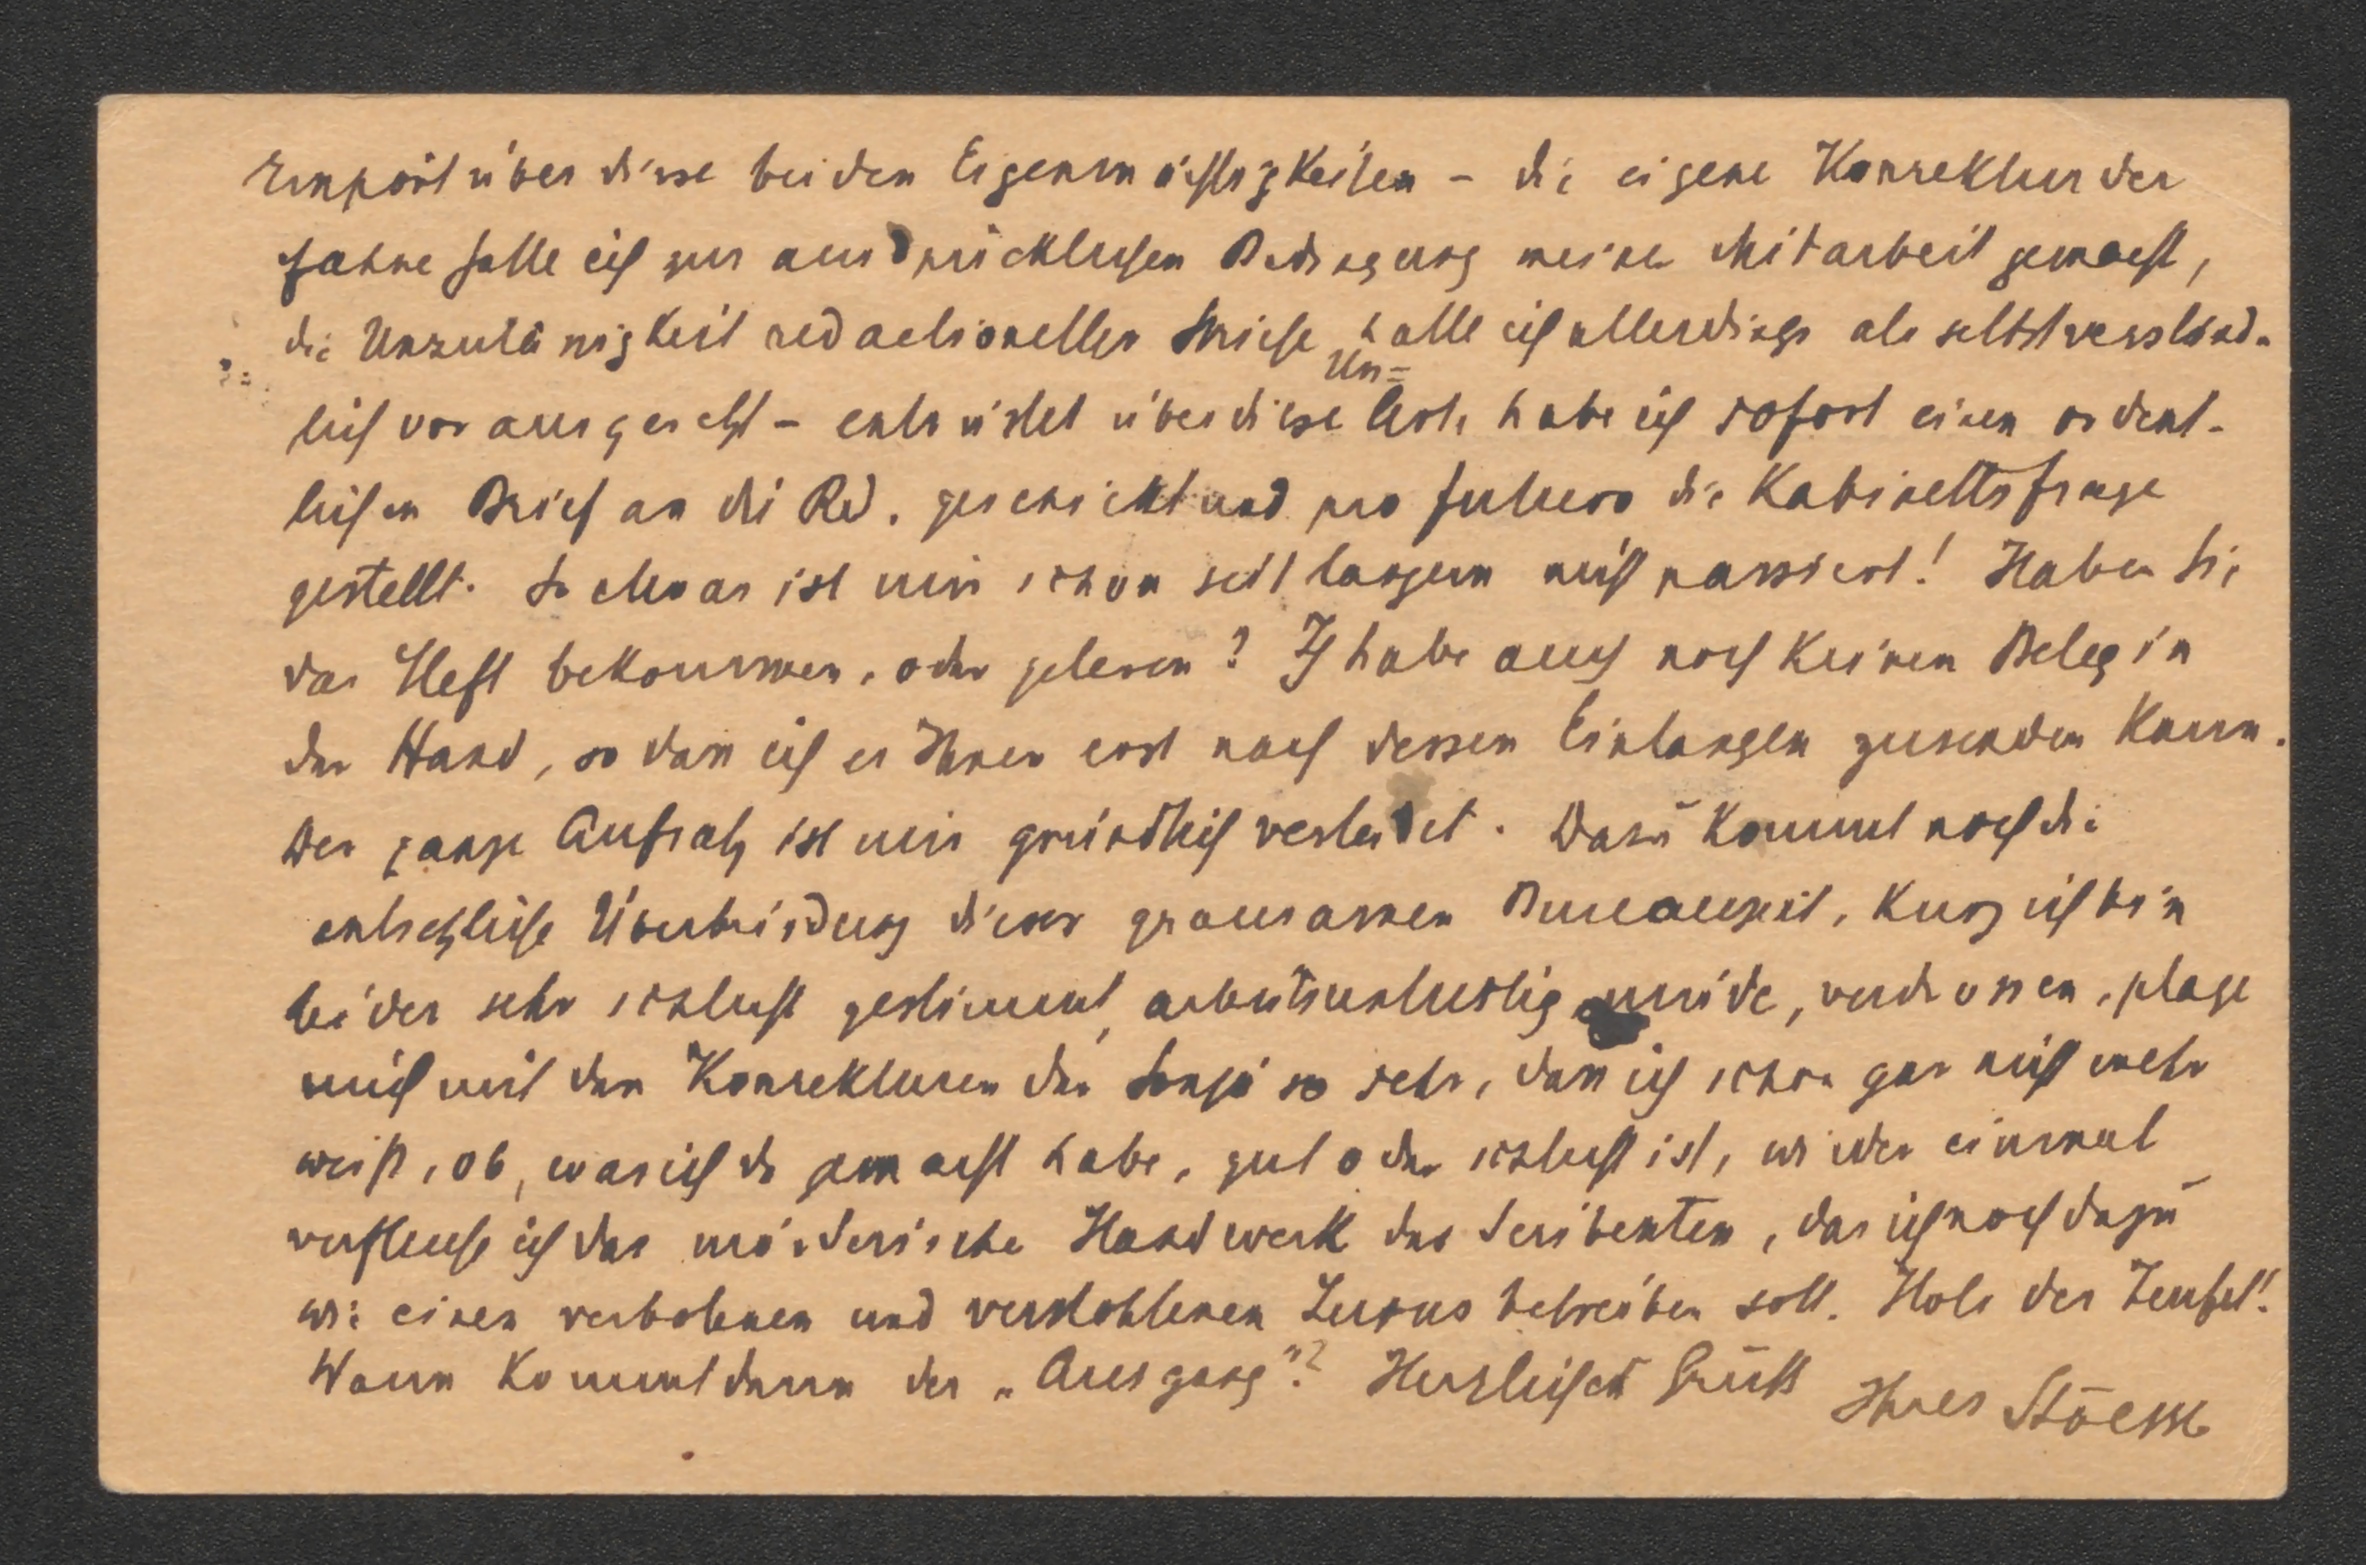 Empört über diese beiden Eigenmächtigkeiten – die eigene Korrektur der
Fahne hatte ich zur ausdrücklichen Bedingung meiner Mitarbeit gemacht,
die Unzulässigkeit redactioneller Striche hatte ich allerdings als selbstverständ-
lich vorausgesetzt – entrüstet über diese Un= Art, habe ich sofort einen ordent-
lichen Brief an die Red. geschickt und pro futuro die Kabinettsfrage
gestellt. So etwas ist mir schon seit langem nicht passiert! Haben Sie
das Heft bekommen, oder gelesen? Ich habe auch noch keinen Beleg in
der Hand, so dass ich es Ihnen erst nach dessen Einlangen zusenden kann.
Der ganze Aufsatz ist mir gründlich verleidet. Dazu kommt noch die
entsetzliche Überbürdung dieser grausamen Bureauzeit, kurz ich bin
leider sehr schlecht gestimmt, arbeitsunlustig, müde, verdrossen, plage
mich mit den Korrekturen der Sonja so sehr, dass ich schon gar nicht mehr
weiß, ob, was ich da gemacht habe, gut oder schlecht ist, wieder einmal
verfluche ich das mörderische Handwerk des Scribenten, das ich noch dazu
wie einen verbotenen und verstohlenen Luxus betreiben soll. Hols der Teufel!
Wann kommt denn der „Ausgang"? Herzlichst Grüßt Ihres Stoessl